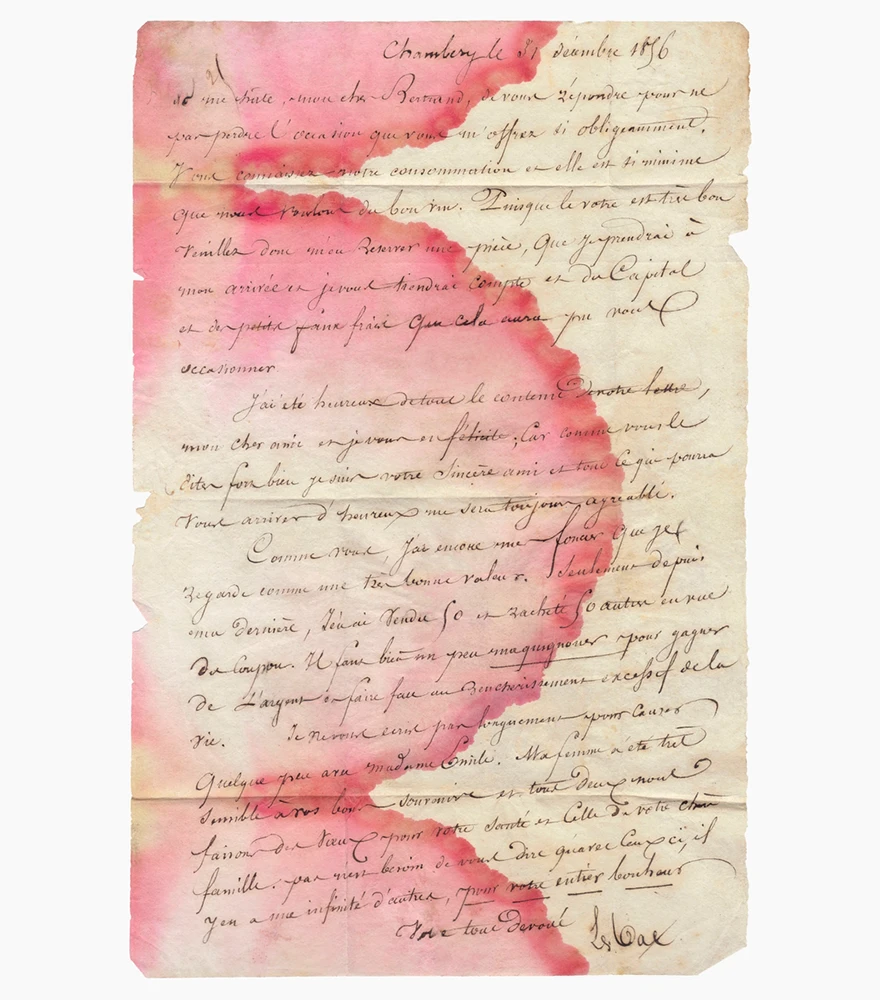 Chambery le 31 décembre 1856
me hâte, mon cher Bertrand, de vous répondre pour ne
pas perdre l'occasion que vous m'offrez si obligeamment.
Vous connaissez notre consommation et elle est si minime
que nous voulons du bon vin. Puisque le votre est très bon
Veuillez donc m'en Reserver une pièce, Que je prendrai à
mon arrivée et je vous tiendrai compte et du Capital
et des petits faux frais Que cela aura pu vous
occasionner
J'ai été heureux de tout le contenu de votre lettre,
mon cher ami et je vous en félicite; Car comme vous le
dites fort bien je suis votre Sincère ami et tout ce qui pourra
Vous arriver d'heureux me sera toujours agreable.
Comme vous, J'ai encore mes foncier Que je
Regarde comme une très bonne valeur. Seulement depuis
ma Dernière, J'en ai Vendu 50 et racheté 50 autres en vue
du Coupon. Il faut bien un peu maquignoner pour gagner
de L'argent et faire face au Rencherissement excessif de la
vie. Je ne vous ecris pas longuement pour Causer
Quelque peu avec madame Emile. Ma femme a été très
Sensible à vos bons souvenirs et tous Deux nous
faisons des Vœux pour votre santé et Celle de votre chère
famille. pas n'est besoin de vous dire qu'avec Ceux ci, il
y en a une infinité d'autres, pour votre entier bonheur
Votre tout Devoué